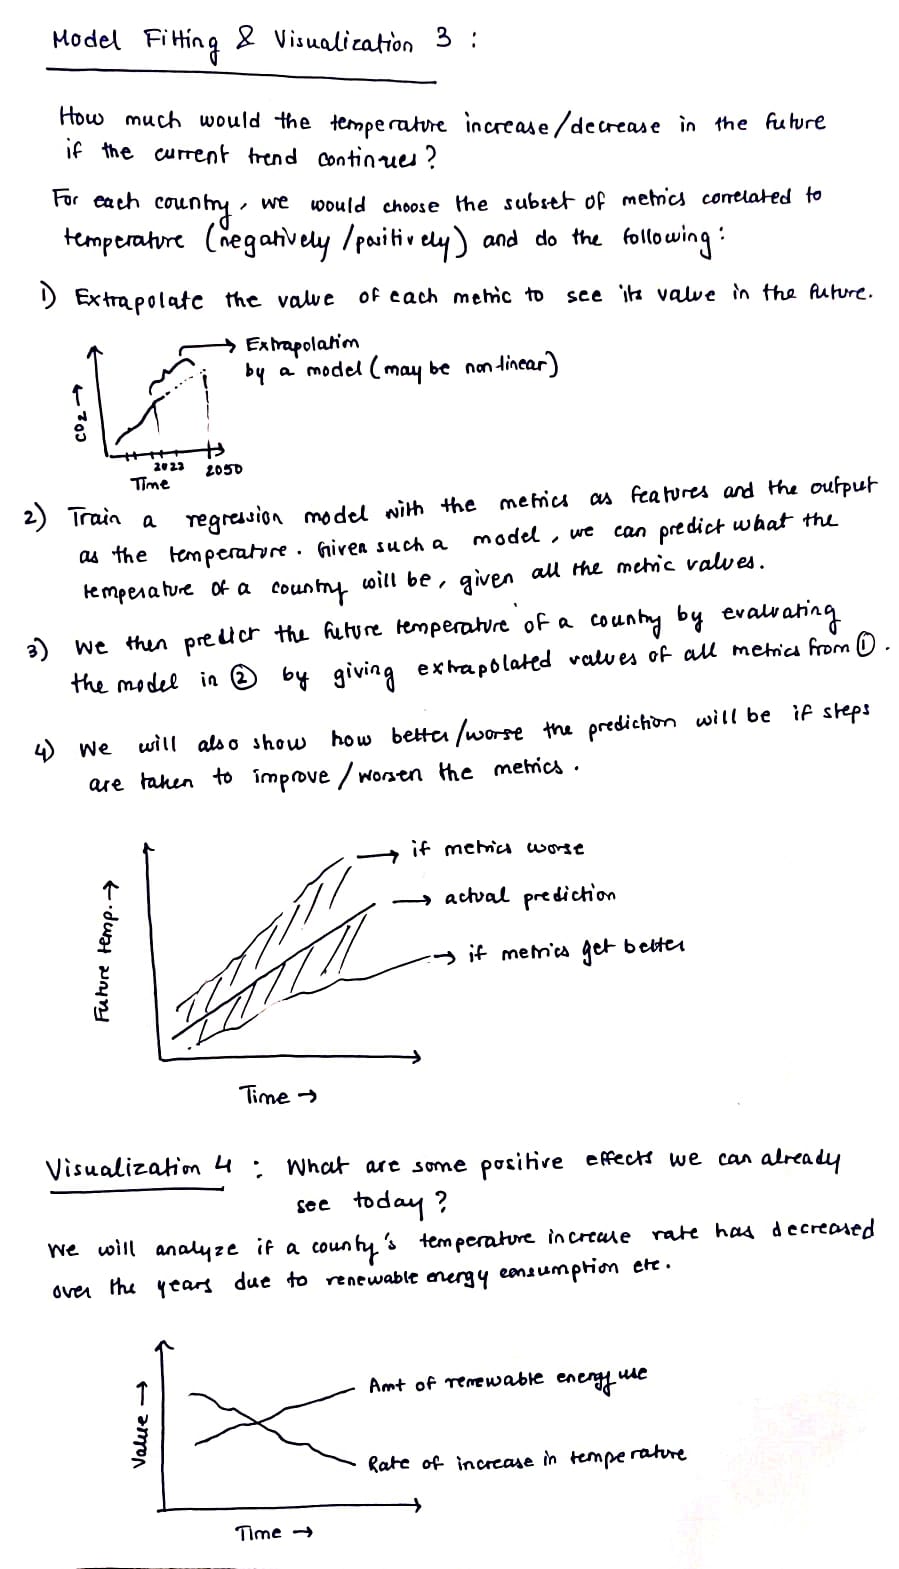 Model Fitting & Visualization 3 :
How much would the temperature increase/decrease in the future
if the current trend continues?
For each country, we would choose the subset of metrics correlated to
temperature (negatively/positively) and do the following:
1) Extrapolate the value of each metric to see its value in the future.
Extrapolation
by a model (may be non-linear)
CO2 →
2023 2050
Time
2) Train a regression model with the metrics as features and the output
as the temperature. Given such a model, we can predict what the
temperature of a country will be, given all the metric values.
3) We then predict the future temperature of a country by evaluating
the model in ② by giving extrapolated values of all metrics from ①.
4) We will also show how better/worse the prediction will be if steps
are taken to improve/worsen the metrics.
→ if metrics worse
→ actual prediction
→ if metrics get better
Future temp. →
Time →
Visualization 4 : What are some positive effects we can already
see today?
We will analyze if a county's temperature increase rate has decreased
over the years due to renewable energy consumption etc.
Amt of renewable energy use
Value →
Rate of increase in temperature
Time →